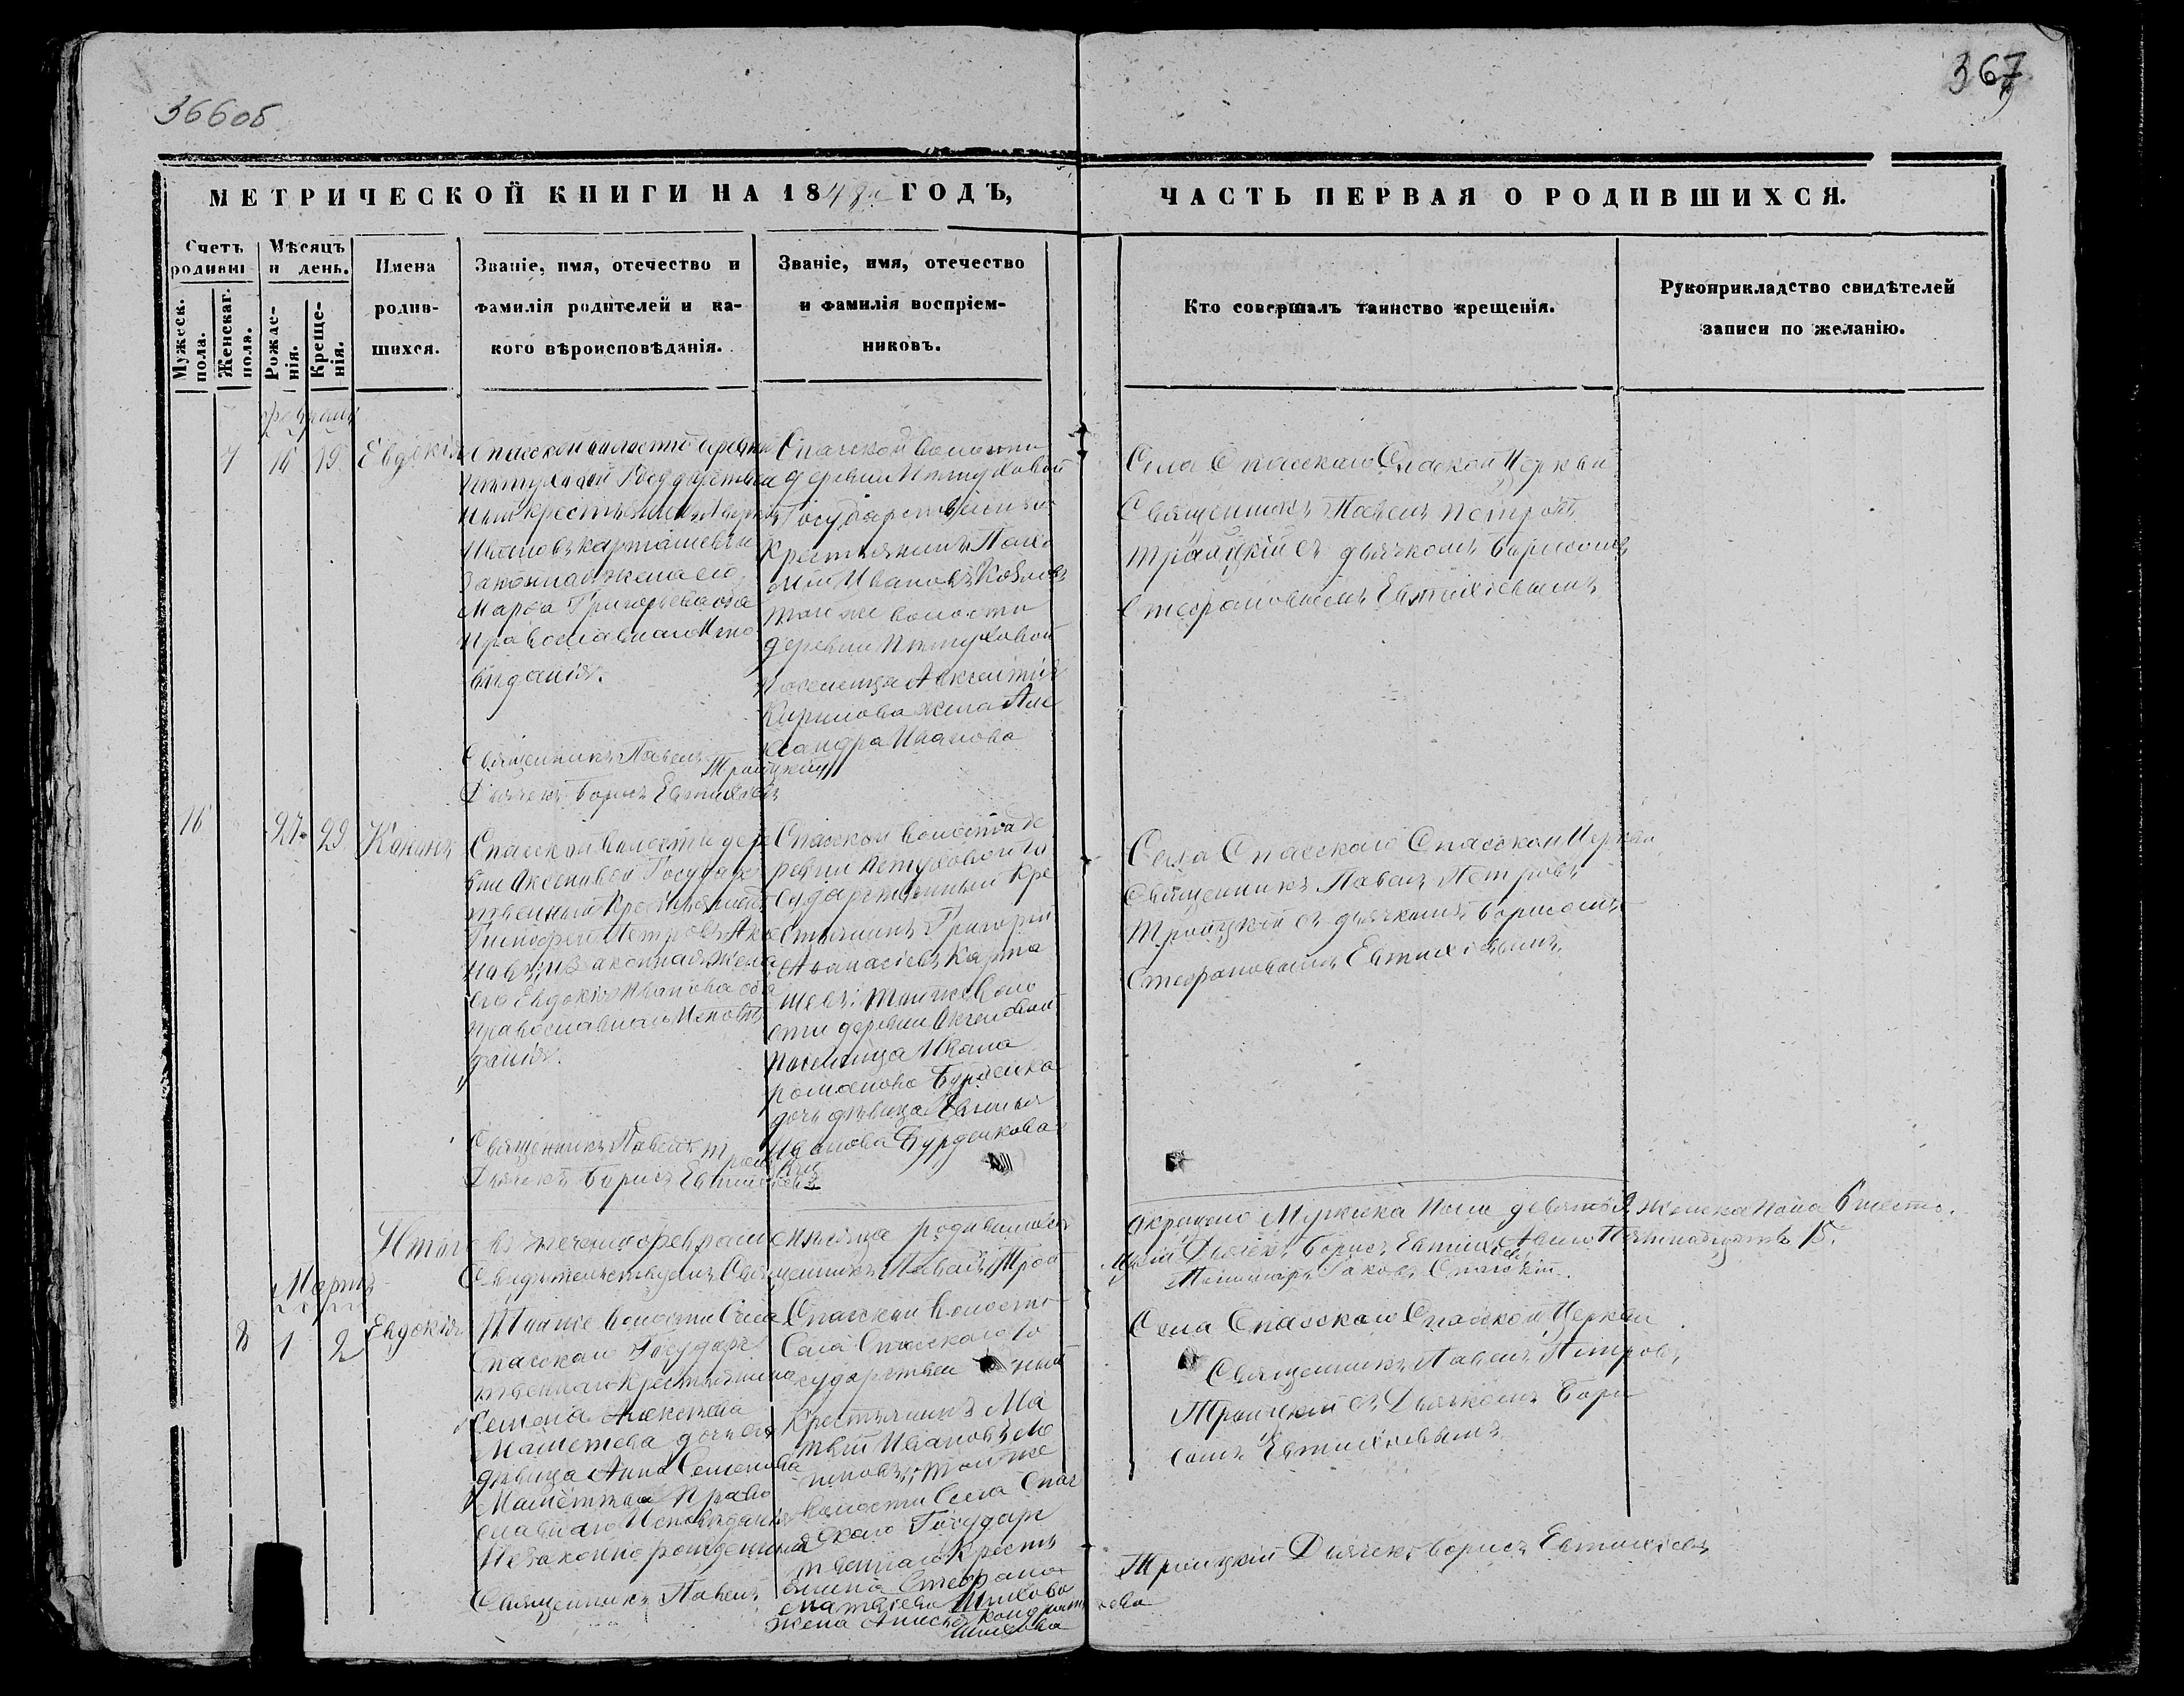 366об
367
МЕТРИЧЕСКОЙ КНИГИ НА 1848й ГОДЪ,
ЧАСТЬ ПЕРВАЯ О РОДИВШИХСЯ.
Счетъ родивш
Мужеск. пола.
Женскаг. пола.
Мѣсяцъ и день.
Рожде-нія.
Креще-нія.
Имена
родив-
шихся.
Званіе, имя, отечество и
фамилія родителей и ка-
кого вѣроисповѣданія.
Званіе, имя, отечество
и фамилія воспріем-
никовъ.
Кто совершалъ таинство крещенія.
Рукоприкладство свидѣтелей
записи по желанію.
февраль
7 19 Евдокія
Спасской волости деревни
Крестьянинъ
Ивановъ Карташевъ и
Законная жена его
Марѳа Григорьева оба
Православнаго Испо
вѣданія.
Священникъ Павелъ Троицкій
Дьячекъ Борисъ Евтихіевъ
Спасской волости
деревни Пѣтуховой
Государственный
Крестьянинъ
Ивановъ
той же волости
деревни Пѣтуховой
Поселенца
Кирилова жена Але
ксандра Иванова
Села Спасскаго Спаской Церкви
Священникъ Павелъ Петровъ
Троицкій съ дьячкомъ Борисомъ
Стефановымъ Евтихіевымъ
16 27 29
Спасской волости дере
вни Аксеновой Государс
твенный Крестьянинъ
Петровъ Аксе
новъ и Законная жена
его Евдокія Иванова оба
православнаго Исповѣ
данія.
Священникъ Павелъ Троицкій
Дьячекъ Борисъ Евтихіевъ
Спасской волости де
ревни Петуховой Го
сударственный Кре
стьянинъ Григорій
Аѳанасіевъ Карта
шевъ; той же воло
сти деревни Аксеновой
поселенца Ивана
Романова
дочь дѣвица
Иванова Бурденкова
Села Спасскаго Спасской Церкви
Священникъ Павелъ Петровъ
Троицкій съ дьячкомъ Борисомъ
Стефановымъ Евтихіевымъ
Итого въ теченіи февраля мѣсяца родившихся
окрещено Мужеска пола девять 9 женска пола 6 шесть.
Свидѣтельствуемъ Священникъ Павелъ Трои
цкій Дьячекъ Борисъ Евтихіевъ
15.
Пономарь Іаковъ Спасскій.
Мартъ
8 1 2 Евдокія
волости Села
Спасскаго Государс
твеннаго Крестьянина
Семена Алексѣева
дочь его
дѣвица Анна Семенова
Право
славнаго Исповѣданія
Незаконно рожденная
Священникъ Павелъ
Троицкій Дьячекъ Борисъ Евтихіевъ
Спасской волости
Села Спасскаго Го
сударствен ный
Крестьянинъ Ма
твѣй Ивановъ
той же
волости Села Спас
скаго Государс
твеннаго Кресть
янина Стефана
Матвѣева Шихова
жена Анисья Кондратьева
Шихова
Села Спасскаго Спасской Церкви
Священникъ Павелъ Петровъ
Троицкій съ Дьячкомъ Бори
сомъ Евтихіевымъ